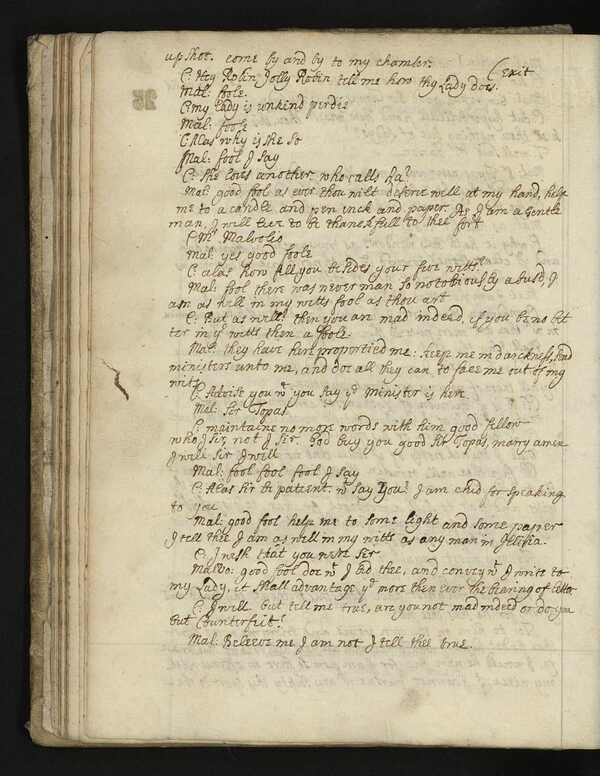 upshot. come by and by to my chamber.
(Exit
C: Hey Robin Jolly Robin tell me how thy Lady does.
Mal: foole.
C: my Lady is unkind perdie
Mal: foole
C Alas why is she so
Mal: fool I say
C: she loves another, who calls ha?
Mal: good fool as ever thou wilt deserve well at my hand, help
me to a candle and pen inck and paper. As I am a Gentle
man, I will live to be thanckfull to thee for't
C: Mr Malvolio
Mal: yes good foole
C: alas how fell you besides your five witts?
Mal: fool there was never man so notobiously abusd, I
am as well in my witts fool as thou art
C: But as well: then you are mad indeed, if you be no bet
ter in yr witts then a foole
Mal: they have here propertied me: keep me in darckness, send
ministers unto me, and doe all they can to face me out of my
witts
C: Advise you wt you say ye minister is here
Mal: Sir Topas
C: maintaine no more words with him good fellow
who, I sir, not I sir. God buy you good Sir Topas, marry amen
I will sir I will
Mal: fool fool fool I say
C: Alas sir be patient. wt say you? I am chid for speaking
to you
Mal: good fool help me to some light and some paper
I tell thee I am as well in my witts as any man in Illiria.
C: I wish that you were sir
Malvo: good fool doe wt I bid thee, and convey wt I write to
my Lady, it shall advantage ye more then ever the bearing of letter
C: I will. but tell me true, are you not mad indeed or do you
but counterfeit?
Mal: Beleeve me I am not I tell thee true.
25